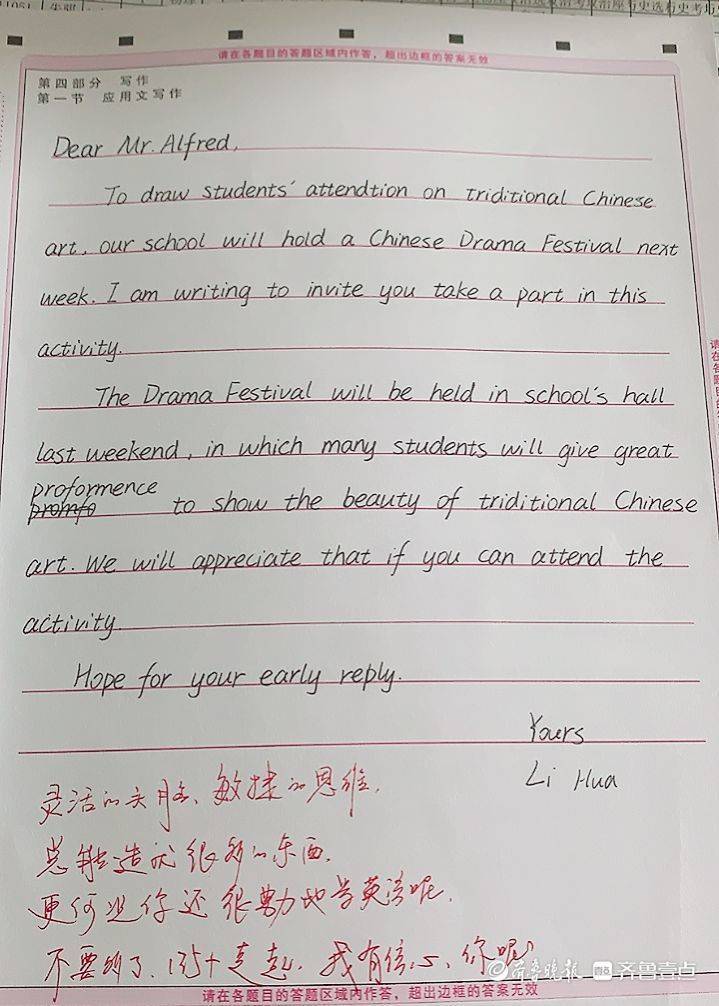 请在各题目的答题区域内作答，超出边框的答案无效
第四部分 写作
第一节 应用文写作
Dear Mr. Alfred,
To draw students' attendtion on triditional Chinese
art, our school will hold a Chinese Drama Festival next
week. I am writing to invite you take a part in this
activity.
The Drama Festival will be held in school's hall
last weekend, in which many students will give great
proformence
promfo
to show the beauty of triditional Chinese
art. We will appreciate that if you can attend the
activity
Hope for your early reply.
Yours
Li Hua
灵活的头脑、敏捷的思维,
总能造就很多的东西,
更何况你还很努力地学英语呢.
不要别了、135+走起. 我有信心、你呢?
齐鲁晚报 齐鲁壹点
请在各题目的答题区域内作答，超出边框的答案无效